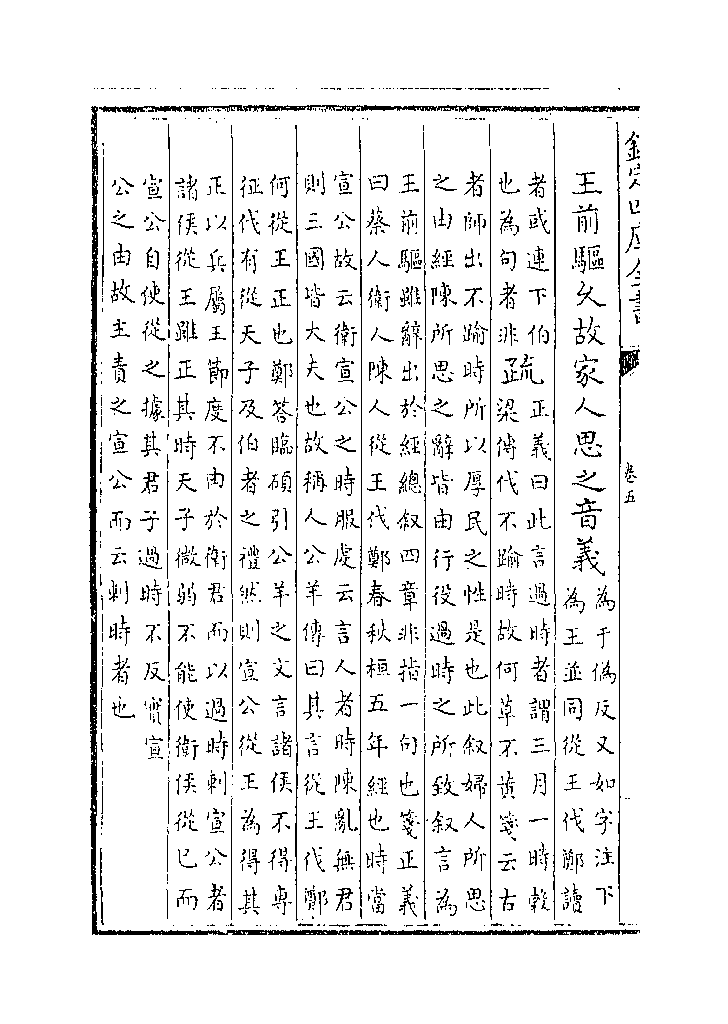 欽定四庫全書
卷五
王前驅久故家人思之音義
為于偽反又如字注下
為王並同從王伐鄭讀
者或連下伯
也為句者非
疏
正義曰此言過時者謂三月一時穀
梁傳伐不踰時故何草不黄箋云古
者師出不踰時所以厚民之性是也此叙婦人所思
之由經陳所思之辭皆由行役過時之所致叙言為
王前驅雖辭出於經總叙四章非指一句也箋正義
曰蔡人衛人陳人從王伐鄭春秋桓五年經也時當
宣公故云衛宣公之時服虔云言人者時陳亂無君
則三國皆大夫也故稱人公羊傳曰其言從王伐鄭
何從王正也鄭荅臨碩引公羊之文言諸侯不得專
征伐有從天子及伯者之禮然則宣公從王為得其
正以兵屬王節度不由於衛君而以過時刺宣公者
諸侯從王雖正其時天子微弱不能使衛侯從已而
宣公自使從之據其君子過時不反實宣
公之由故主責之宣公而云刺時者也